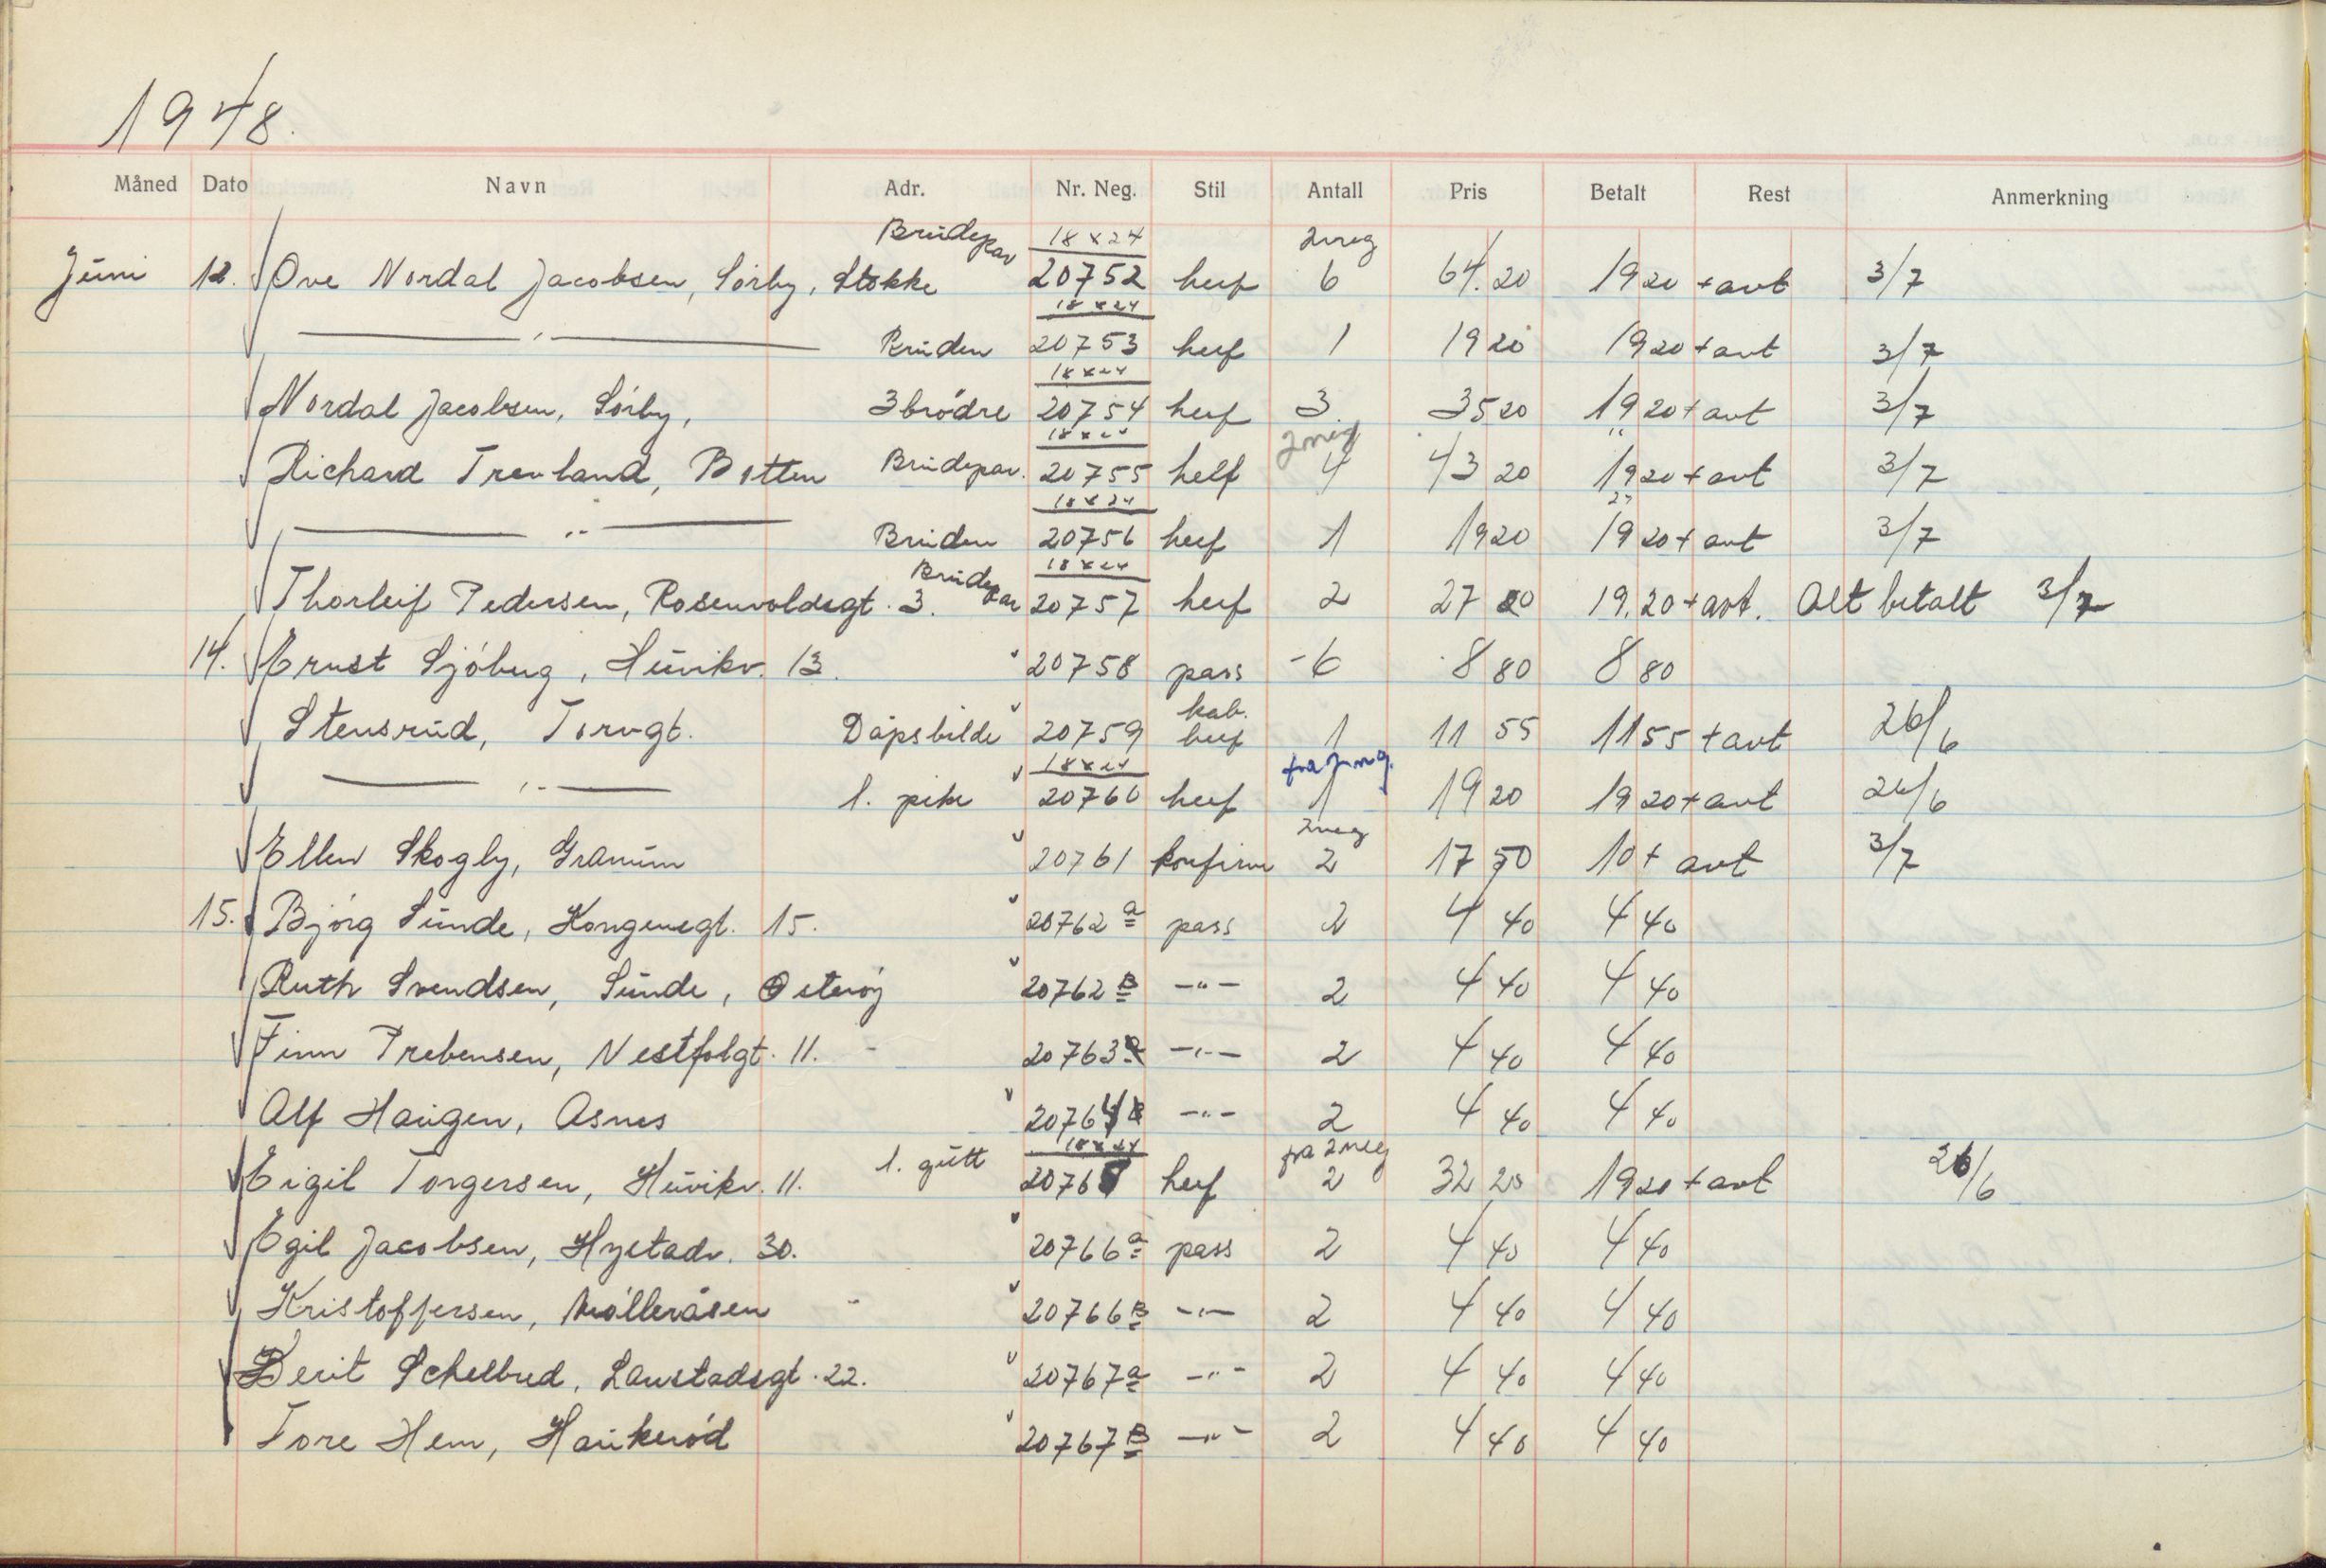 1948.
Måned Dato Navn Adr. Nr. Neg. Stil Antall Pris Betalt Rest Anmerkning
Brudepar 18 x 24 2 neg
Juni 12. Ove Nordal Jacobsen, Sørby, Stokke 20752 helf 6 64.20 19 20 + avt 3/7
18 x 24
— " — Bruden 20753 helf 1 19 20 19 20 + avt 3/7
18 x 24
Nordal Jacobsen, Sørby, 3 brødre 20754 helf 3. 35 20 19 20 + avt 3/7
18 x 24 2 neg
Richard Trevland, Botten Brudepar. 20755 helf 4 43 20 19 20 + avt 3/7
18 x 24
— " — Bruden 20756 helf 1 19 20 19 20 + avt 3/7
Brudepar 18 x 24
Thorleif Pedersen, Rosenvoldsgt. 3. 20757 helf 2 27 20 19.20 + avt. Alt betalt 3/7
14. Ernst Sjøberg, Huvikv. 13. 20758 pass - 6 8 80 8 80
kab.
Stensrud, Torvgt. Dåpsbilde 20759 helf 1 11 55 11 55 + avt 26/6
18 x 24 fra 2 neg.
— " — l. pike 20760 helf 1 19 20 19 20 + avt 26/6
2 neg
Ellen Skogly, Granum 20761 konfirm 2 17 50 10 + avt 3/7
15. Bjørg Sunde, Kongensgt. 15. 20762 a pass 2 4 40 4 40
Ruth Svendsen, Sunde, Østerøy 20762 B — " — 2 4 40 4 40
Finn Prebensen, Vestfolgt. 11. 20763 a — " — 2 4 40 4 40
Alf Haugen, Åsnes 20764 B — " — 2 4 40 4 40
l. gutt 18 x 24 fra 2 neg
Eigil Torgersen, Huvikv. 11. 20765 helf 2 32 20 19 20 + avt 26/6
Egil Jacobsen, Hystadv. 30. 20766 a pass 2 4 40 4 40
Kristoffersen, Mølleråsen 20766 B — " — 2 4 40 4 40
Berit Schelbred, Laustadsgt. 22. 20767 a — " — 2 4 40 4 40
Tore Hem, Haukerød 20767 B — " — 2 4 40 4 40